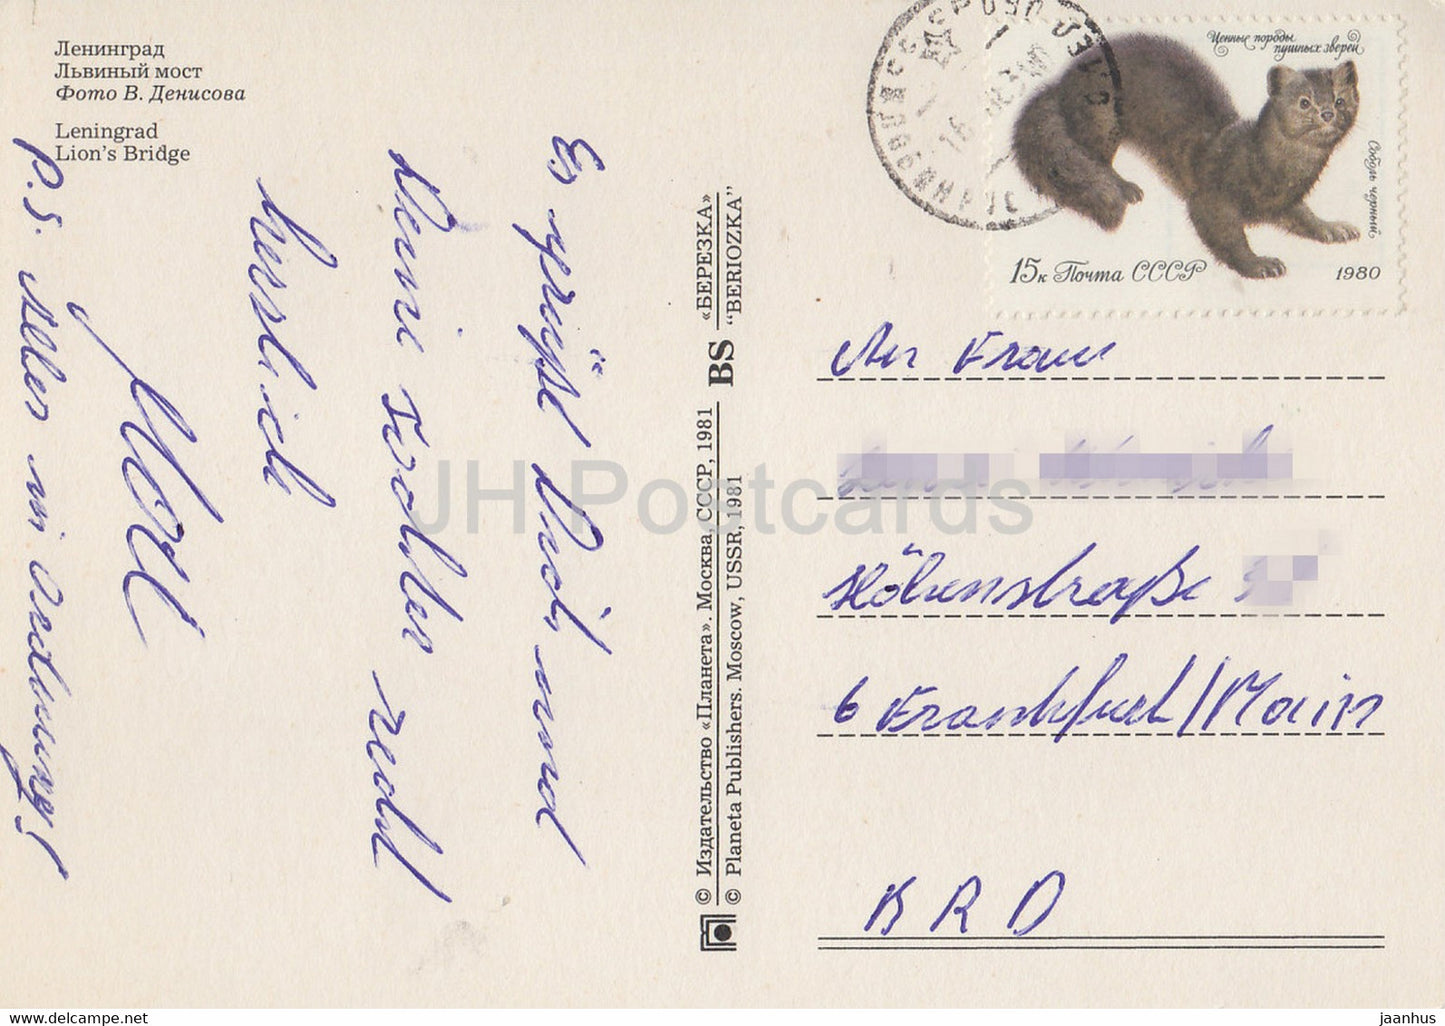 Ленинград
Львиный мост
Фото В. Денисова
Leningrad
Lion's Bridge
Es grüßt Dich und
Deine Tochter
herzlich
P.S. Alles in Ordnung!
© Издательство «Планета». Москва, СССР, 1981
© Planeta Publishers. Moscow, USSR, 1981
BS
«БЕРЕЗКА»
"BERIOZKA"
Ценные породы
пушных зверей
Соболь черный
15к Почта СССР
1980
An Frau
Höhenstraße
6 Frankfurt/Main
BRD
JH Postcards
hipstamp.com
jaanhus